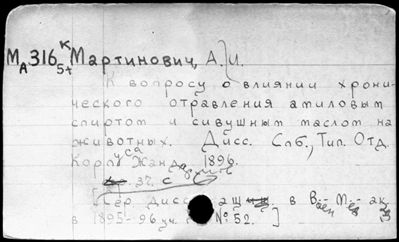 МА316 5+ К Мартинович, А. И.
К вопросу о влиянии хрони-
ческого отравления амиловым
спиртом и сивушным маслом на
животных. Дисс. Спб., Тип. Отд.
Корпуса Жандармов 1896.
37. с
[Сер. дисс. защ. в Воен-Мед- ак.
в 1895-96 уч. № 52.]